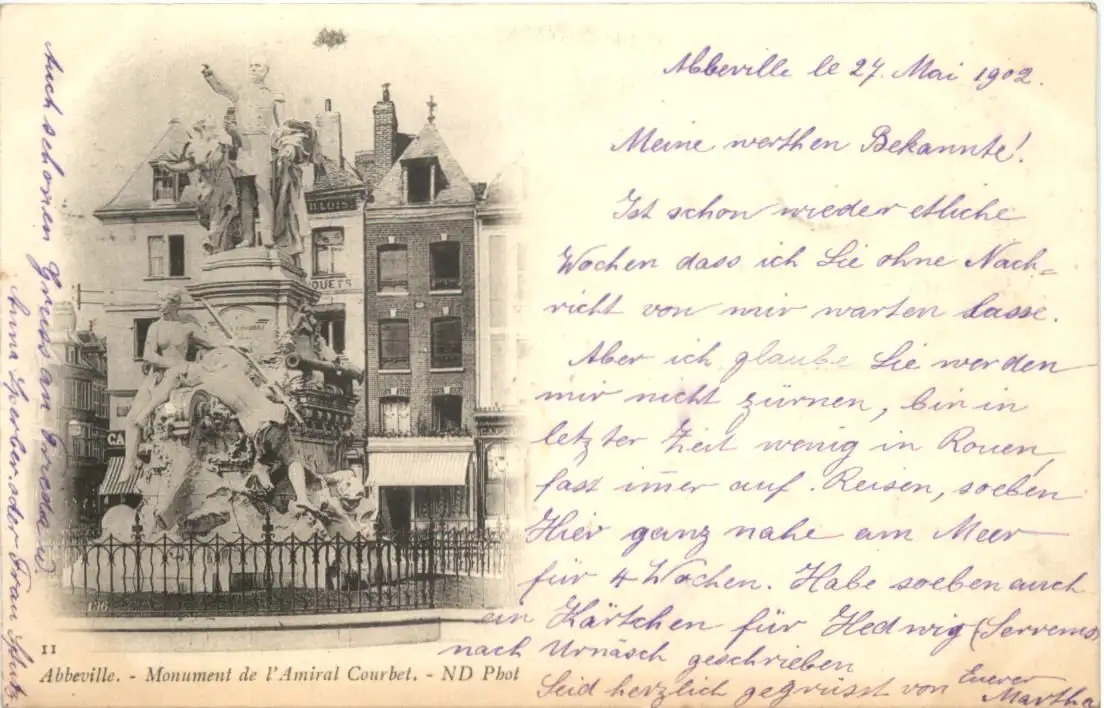 Abbeville le 27. Mai 1902.
Meine werthen Bekannte!
Ist schon wieder etliche
Wochen dass ich Sie ohne Nach=
richt von mir warten lasse.
Aber ich glaube Sie werden
mir nicht zürnen, bin in
letzter Zeit wenig in Rouen,
fast im̄er auf Reisen, soeben
Hier ganz nahe am Meer
für 4 Wochen. Habe soeben auch
ein Kärtchen für Hedwig
nach Urnäsch geschrieben
Seid herzlich gegrüsst von Euerer
Martha
Auch schönen Gruss an Frieda
Anna Sperber oder Frau
136
11
Abbeville. - Monument de l'Amiral Courbet. - ND Phot